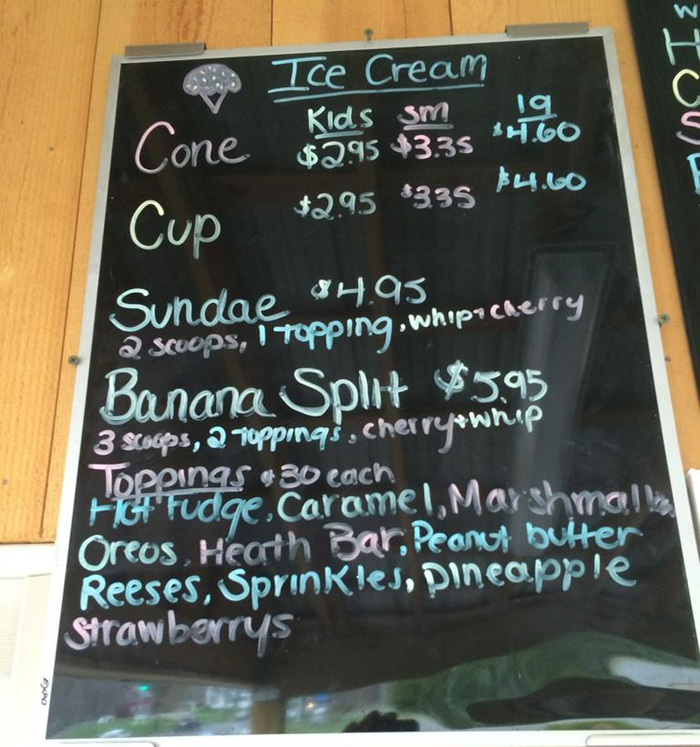 Ice Cream
Kids sm lg
Cone $2.95 $3.35 $4.60
Cup $2.95 $3.35 $4.60
Sundae $4.95
2 scoops, 1 topping, whip + cherry
Banana Split $5.95
3 scoops, 2 toppings, cherry + whip
Toppings $.30 each
Hot Fudge, Caramel, Marshmallow
Oreos, Heath Bar, Peanut butter
Reeses, Sprinkles, Pineapple
Strawberrys